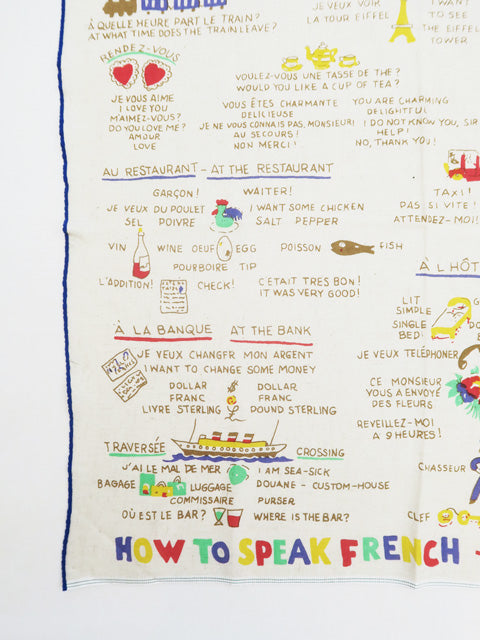 À QUELLE HEURE PART LE TRAIN?
AT WHAT TIME DOES THE TRAIN LEAVE?
JE VEUX VOIR
LA TOUR EIFFEL
I WANT
TO SEE
THE EIFFEL
TOWER
RENDEZ-VOUS
JE VOUS AIME
I LOVE YOU
M'AIMEZ-VOUS?
DO YOU LOVE ME?
AMOUR
LOVE
VOULEZ-VOUS UNE TASSE DE THE?
WOULD YOU LIKE A CUP OF TEA?
VOUS ÊTES CHARMANTE YOU ARE CHARMING
DELICIEUSE DELIGHTFUL
JE NE VOUS CONNAIS PAS, MONSIEUR! I DO NOT KNOW YOU, SIR
AU SECOURS! HELP!
NON MERCI! NO, THANK YOU!
AU RESTAURANT - AT THE RESTAURANT
GARÇON! WAITER!
JE VEUX DU POULET I WANT SOME CHICKEN
SEL POIVRE SALT PEPPER
VIN WINE OEUF EGG POISSON FISH
POURBOIRE TIP
L'ADDITION! CHECK! C'ETAIT TRES BON!
IT WAS VERY GOOD!
TAXI!
PAS SI VITE!
ATTENDEZ-MOI!
À L'HÔT
LIT
SIMPLE
SINGLE
BED
JE VEUX TELÉPHONER
CE MONSIEUR
VOUS A ENVOYÉ
DES FLEURS
REVEILLEZ-MOI
A 9 HEURES!
CHASSEUR
CLEF
À LA BANQUE AT THE BANK
JE VEUX CHANGER MON ARGENT
I WANT TO CHANGE SOME MONEY
DOLLAR DOLLAR
FRANC FRANC
LIVRE STERLING POUND STERLING
TRAVERSÉE CROSSING
J'AI LE MAL DE MER I AM SEA-SICK
BAGAGE LUGGAGE DOUANE - CUSTOM-HOUSE
COMMISSAIRE PURSER
OÙ EST LE BAR? WHERE IS THE BAR?
HOW TO SPEAK FRENCH -